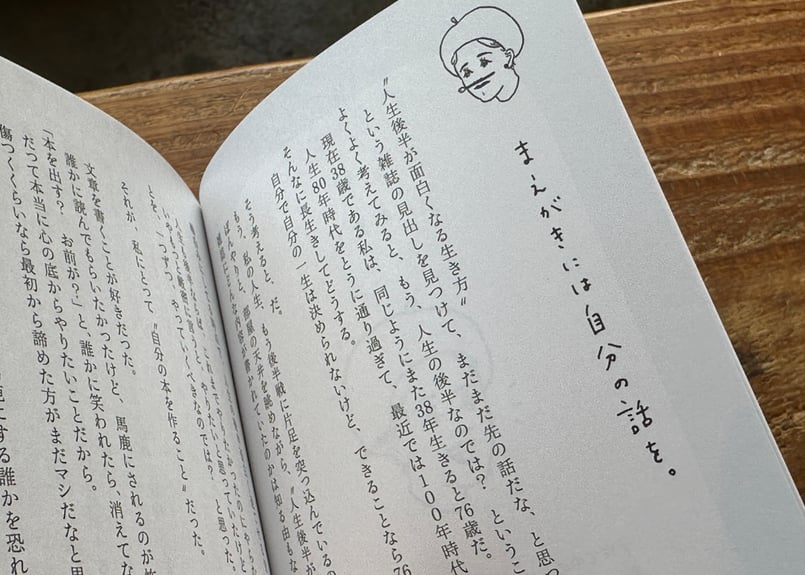 まえがきには自分の話を。
"人生後半が面白くなる生き方"
という雑誌の見出しを見つけて、まだまだ先の話だな、と思っ
よくよく考えてみると、もう、人生の後半なのでは? というこ
現在38歳である私は、同じようにまた38年生きると76歳だ。
人生80年時代をとうに通り過ぎて、最近では100年時代
そんなに長生きしてどうする。
自分で自分の一生は決められないけど、できることなら76
そう考えると、だ。
もう、私の人生、もう後半戦に片足を突っ込んでいるの
ぼんやりと、部屋の天井を眺めながら、"人生後半が
どんな内容が書かれていたのかは知る由もな
やりたいと思っていたけど
いや、もっと厳密に言うと、
一つずつ、やっていくべきなのでは? と思った。
それが、私にとって"自分の本を作ること"だった。
文章を書くことが好きだった。
誰かに読んでもらいたかったけど、馬鹿にされるのが
「本を出す? お前が?」と、誰かに笑われたら、消えてな
だって本当に心の底からやりたいことだから。
傷つくくらいなら最初から諦めた方がまだマシだなと思
する誰かを恐れ